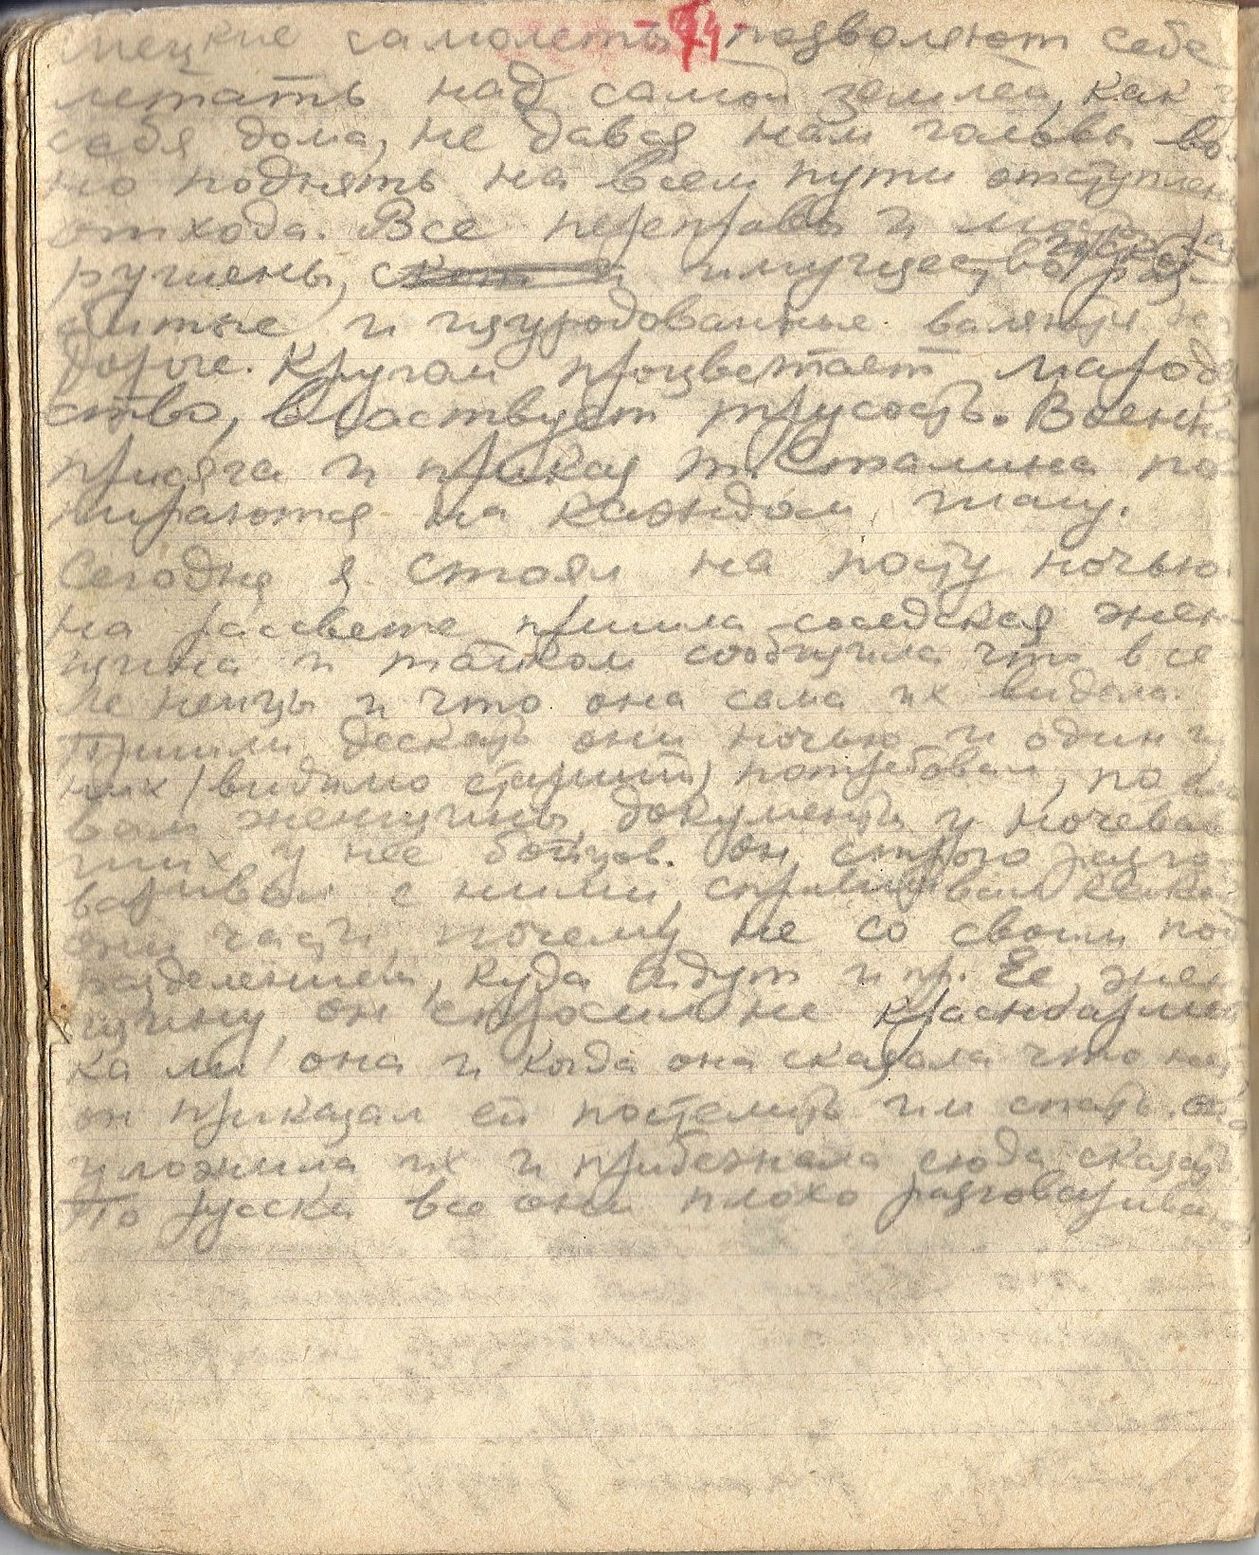 74
мецкие самолеты позволяют себе
летать над самой землей, как у
себя дома, не давая нам головы во
но поднять на всем пути отступлен
отхода. Все переправы и мосты ра
рушены, имущество, раз
битые и изуродованные валяются на
дороге. Кругом процветает мароде
ство, властвует трусость. Военна
присяга и приказ т. Сталина по-
пираются на каждом шагу.
Сегодня я стоял на посту ночью.
На рассвете пришла соседская жен
щина и тайком сообщила что в се
ле немцы и что она сама их видела.
Пришли дескать они ночью и один и
них (видимо старший) потребовал, по сло
вам женщины, документы у ночевав
ших у нее бойцов. Он строго разго-
варивал с ними, спрашивал какой
они части, почему не со своим под
разделением, куда идут и пр. Ее, жен
щину, он спросил не красноармей
ка ли она и когда она сказала что нет,
он приказал ей постелить им спать. Она
уложила их и прибежала сюда сказать
По русски все они плохо разговарива